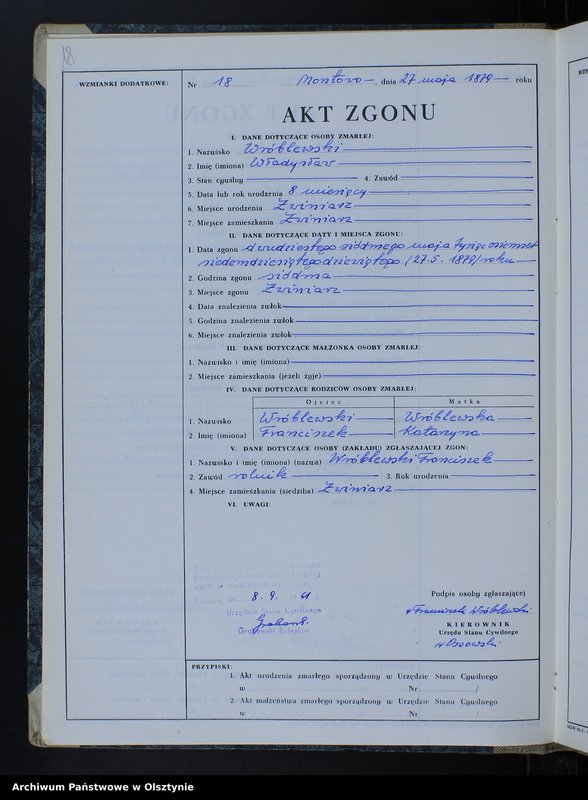 18
WZMIANKI DODATKOWE:
Nr 18 Montowo, dnia 27 maja 1879 roku
AKT ZGONU
I. DANE DOTYCZĄCE OSOBY ZMARŁEJ:
1. Nazwisko Wróblewski
2. Imię (imiona) Władysław
3. Stan cywilny 4. Zawód
5. Data lub rok urodzenia 8 miesięcy
6. Miejsce urodzenia Zwiniarz
7. Miejsce zamieszkania Zwiniarz
II. DANE DOTYCZĄCE DATY I MIEJSCA ZGONU:
1. Data zgonu dwudziestego siódmego maja tysiąc osiemset
siedemdziesiątego dziewiątego (27.5.1879) roku
2. Godzina zgonu siódma
3. Miejsce zgonu Zwiniarz
4. Data znalezienia zwłok
5. Godzina znalezienia zwłok
6. Miejsce znalezienia zwłok
III. DANE DOTYCZĄCE MAŁŻONKA OSOBY ZMARŁEJ:
1. Nazwisko i imię (imiona)
2. Miejsce zamieszkania (jeżeli żyje)
IV. DANE DOTYCZĄCE RODZICÓW OSOBY ZMARŁEJ:
Ojciec Matka
1. Nazwisko Wróblewski Wróblewska
2. Imię (imiona) Franciszek Katarzyna
V. DANE DOTYCZĄCE OSOBY (ZAKŁADU) ZGŁASZAJĄCEJ ZGON:
1. Nazwisko i imię (imiona) (nazwa) Wróblewski Franciszek
2. Zawód rolnik 3. Rok urodzenia
4. Miejsce zamieszkania (siedziba) Zwiniarz
VI. UWAGI:
Lubawa, dn. 8.9.
Urzędnik Stanu Cywilnego
Grabowski Bolesław
Podpis osoby zgłaszającej
Franciszek Wróblewski
KIEROWNIK
Urzędu Stanu Cywilnego
PRZYPISKI:
1. Akt urodzenia zmarłego sporządzony w Urzędzie Stanu Cywilnego
w Nr /
2. Akt małżeństwa zmarłego sporządzony w Urzędzie Stanu Cywilnego
w Nr /
Archiwum Państwowe w Olsztynie